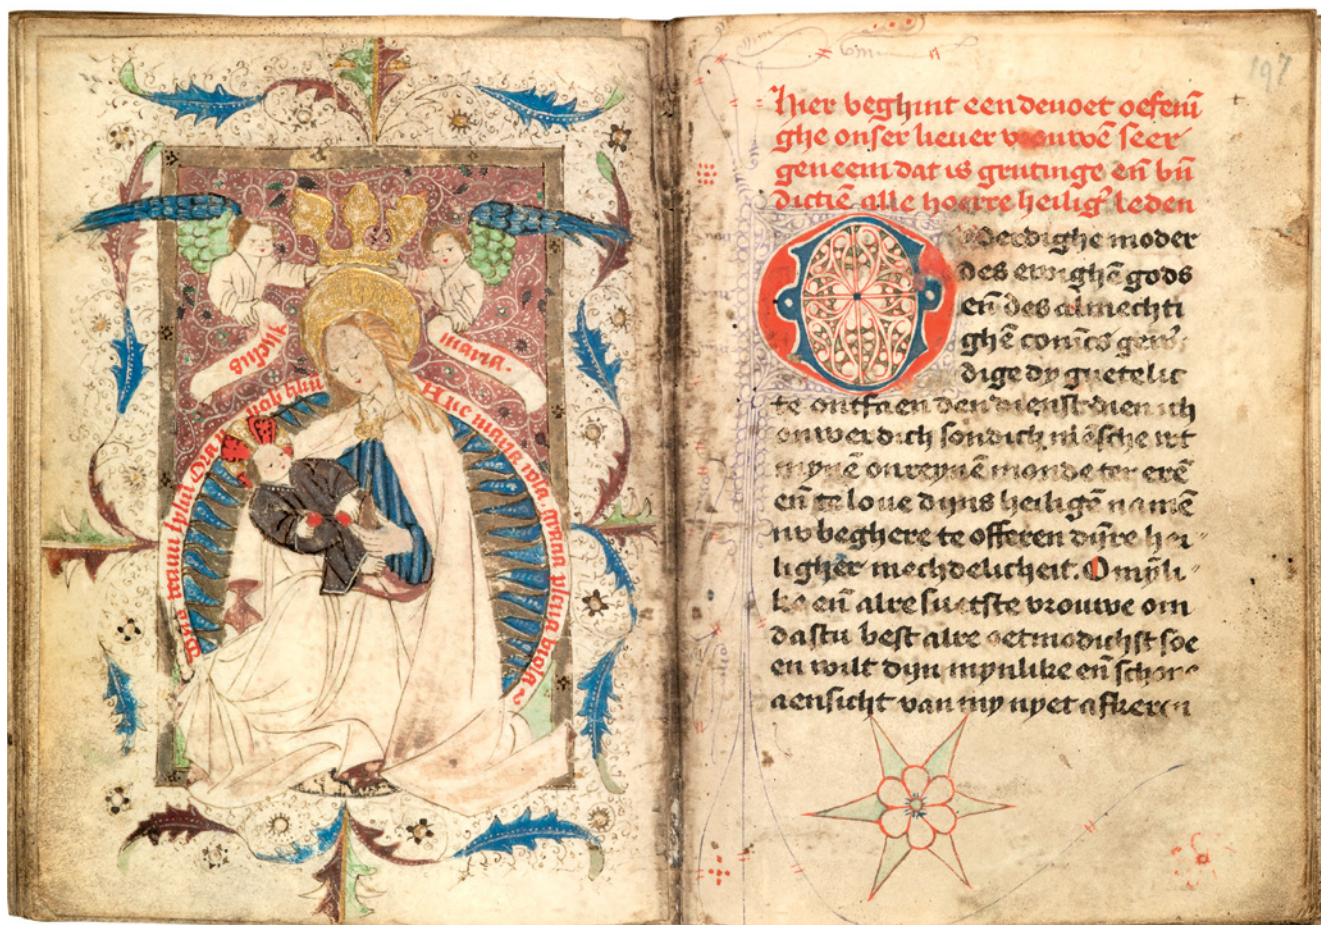 maria.
Aue maria
Hier beghint een deuoet oefenī
ghe onser lieuer vrouwē seer
geneem dat is grutinge eñ bñ
dictiē alle hoerre heilig leden
O Werdighe moder
des ewighē gods
eñ des almechti
ghē conīcs
dige dy guetelic
te ontfaen den dienst dien ich
onwerdich sondich mēsche wt
mynē onreynē monde ter erē
eñ te loue dijns heiligē namē
nv beghere te offeren dijre hei
ligher mechdelicheit. O mȳli
ke eñ alre suetste vrouwe om
dastu best alre oetmodichst soe
en wilt dijn mynlike eñ schone
aensicht van my nyet afkeren
197